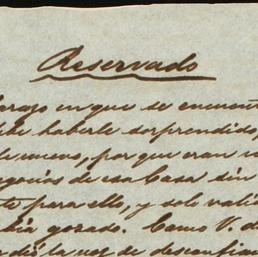 Reservado
arazo en que se encuent
be haberle sorprendido,
de nuevo, por que eran in
negocios de esa Casa sin
para ello, y solo vali
bia gozado. Como V. d
dió la voz de desconfian